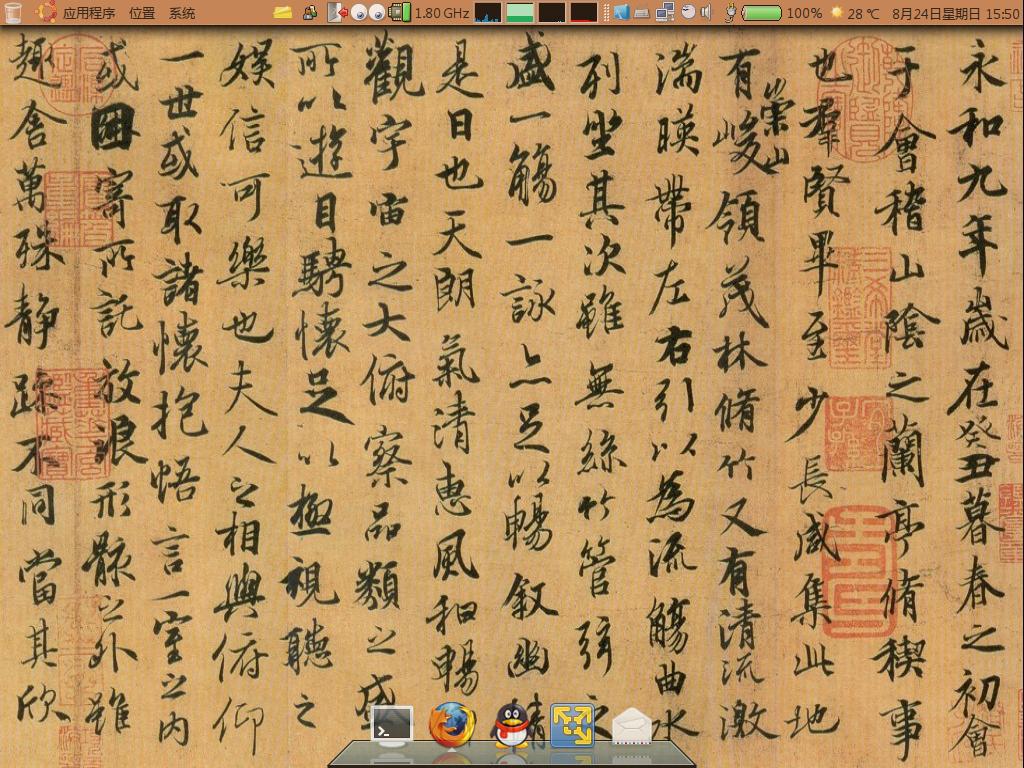 应用程序 位置 系统 1.80 GHz 100% 28 ℃ 8月24日星期日 15:50
永和九年歲在癸丑暮春之初會
于會稽山陰之蘭亭脩稧事
也羣賢畢至少長咸集此地
有崇山峻領茂林脩竹又有清流激
湍暎帶左右引以為流觴曲水
列坐其次雖無絲竹管弦之
盛一觴一詠亦足以暢敘幽情
是日也天朗氣清惠風和暢
觀宇宙之大俯察品類之盛
所以遊目騁懷足以極視聽之
娛信可樂也夫人之相與俯仰
一世或取諸懷抱悟言一室之內
或因寄所託放浪形骸之外雖
趣舍萬殊静躁不同當其欣